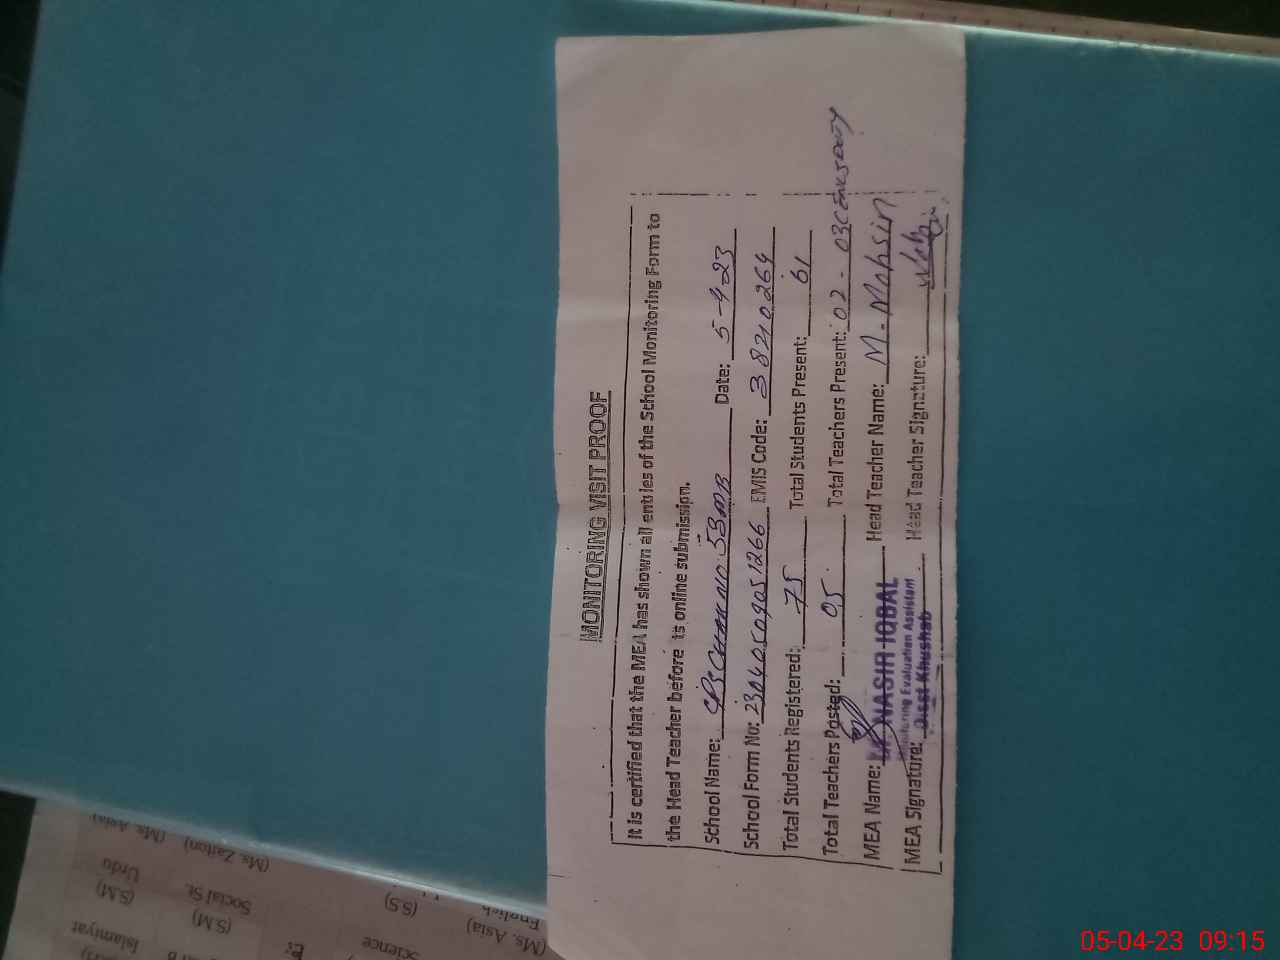 MONITORING VISIT PROOF
It is certified that the MEA has shown all entries of the School Monitoring Form to
the Head Teacher before its online submission.
School Name: GPS CHAK NO. 58 MB Date: 5-4-23
School Form No: 23040509051266 EMIS Code: 38210264
Total Students Registered: 75 Total Students Present: 61
Total Teachers Posted: 05 Total Teachers Present: 02 - 03
MEA Name: NASIR IQBAL Head Teacher Name: M. Mohsin
Monitoring Evaluation Assistant
MEA Signature: Distt Khushab Head Teacher Signature:
(Ms. Asia)
(Ms. Zaiton)
(Ms. Asia)
Urdu
(S.M)
Social St.
(S.M)
English
(S.S)
(Ms. Asia)
Islamiyat
Science
05-04-23 09:15